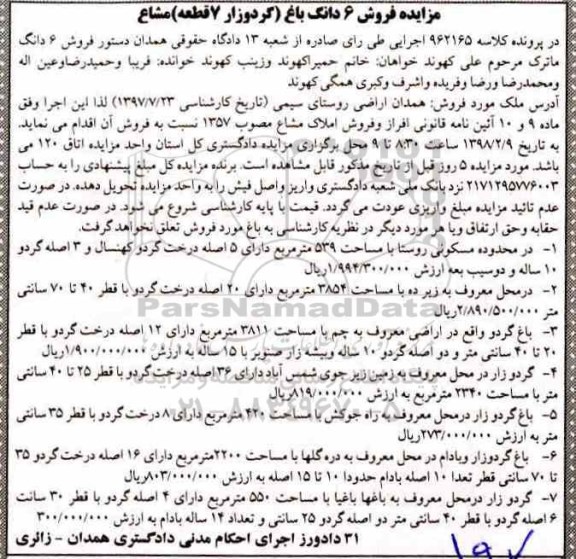 مزایده فروش ۶ دانگ باغ (گردوزار ۷قطعه)مشاع
در پرونده کلاسه ۹۶۲۱۶۵ اجرایی طی رای صادره از شعبه ۱۳ دادگاه حقوقی همدان دستور فروش ۶ دانگ
ماترک مرحوم علی کهوند خواهان: خانم حمیراکهوند وزینب کهوند خوانده: فریبا وحمیدرضاوعین اله
ومحمدرضا ورضا وفریده واشرف وکبری همگی کهوند
آدرس ملک مورد فروش: همدان اراضی روستای سیمی (تاریخ کارشناسی ۱۳۹۷/۷/۲۳) لذا این اجرا وفق
ماده ۹ و ۱۰ آئین نامه قانونی افراز وفروش املاک مشاع مصوب ۱۳۵۷ نسبت به فروش آن اقدام می نماید.
به تاریخ ۱۳۹۸/۲/۹ ساعت ۸:۳۰ تا ۹ محل برگزاری مزایده دادگستری کل استان واحد مزایده اتاق ۱۲۰ می
باشد. مورد مزایده ۵ روز قبل از تاریخ مذکور قابل مشاهده است. برنده مزایده کل مبلغ پیشنهادی را به حساب
۲۱۷۱۲۹۵۷۷۶۰۰۳ نزد بانک ملی شعبه دادگستری واریز واصل فیش را به واحد مزایده تحویل دهده. در صورت
عدم تائید مزایده مبلغ واریزی عودت می گردد. قیمت با پایه کارشناسی شروع می شود. در صورت عدم قید
حقابه وحق ارتفاق ویا هر مورد دیگر در نظریه کارشناسی به باغ مورد فروش تعلق نخواهد گرفت.
۱- در محدوده مسکونی روستا با مساحت ۵۳۹ مترمربع دارای ۵ اصله درخت گردو کهنسال و ۳ اصله گردو
۱۰ ساله و دوسیب بعه ارزش ۱/۹۹۴/۳۰۰/۰۰۰ریال
۲- درمحل معروف به زیر ده با مساحت ۳۸۵۴ مترمربع دارای ۲۰ اصله درخت گردو با قطر ۴۰ تا ۷۰ سانتی
متر ۲/۸۹۰/۵۰۰/۰۰۰ریال
۳- باغ گردو واقع در اراضی معروف به چم با مساحت ۳۸۱۱ مترمربع دارای ۱۲ اصله درخت گردو با قطر
۲۰ تا ۴۰ سانتی متر و دو اصله گردو ۱۰ ساله وبیشه زار صنوبر با ۱۵ ساله به ارزش ۱/۹۰۰/۰۰۰/۰۰۰ریال
۴- گردو زار در محل معروف به زمین زیر جوی شمس آباد دارای ۳۶ اصله درخت گردو با قطر ۲۵ تا ۴۰ سانتی
متر با مساحت ۲۳۴۰ مترمربع به ارزش ۸۱۹/۰۰۰/۰۰۰ریال
۵- باغ گردو زار درمحل معروف به راه جوکش با مساحت ۴۲۰ مترمربع دارای ۸ درخت گردو با قطر ۳۵ سانتی
متر به ارزش ۲۷۳/۰۰۰/۰۰۰ریال
۶- باغ گردوزار وبادام در محل معروف به دره گلها با مساحت ۲۲۰۰مترمربع دارای ۱۶ اصله درخت گردو ۳۵
تا ۷۰ سانتی قطر تعدا ۱۰ اصله بادام حدودا ۱۰ تا ۱۵ اصله به ارزش ۸۰۳/۰۰۰/۰۰۰ریال
۷- گردو زار درمحل معروف به باغها باغبا با مساحت ۵۵۰ مترمربع دارای ۴ اصله گردو با قطر ۳۰ سانت
۶ اصله گردو با قطر ۴۰ سانتی متر دو اصله گردو ۲۵ سانتی و تعداد ۱۴ ساله بادام به ارزش ۳۰۰/۰۰۰/۰۰۰
۳۱ دادورز اجرای احکام مدنی دادگستری همدان - زائری
ParsNamadData
۰۲۱-۸۸۳۴۹۶۷۰-۵